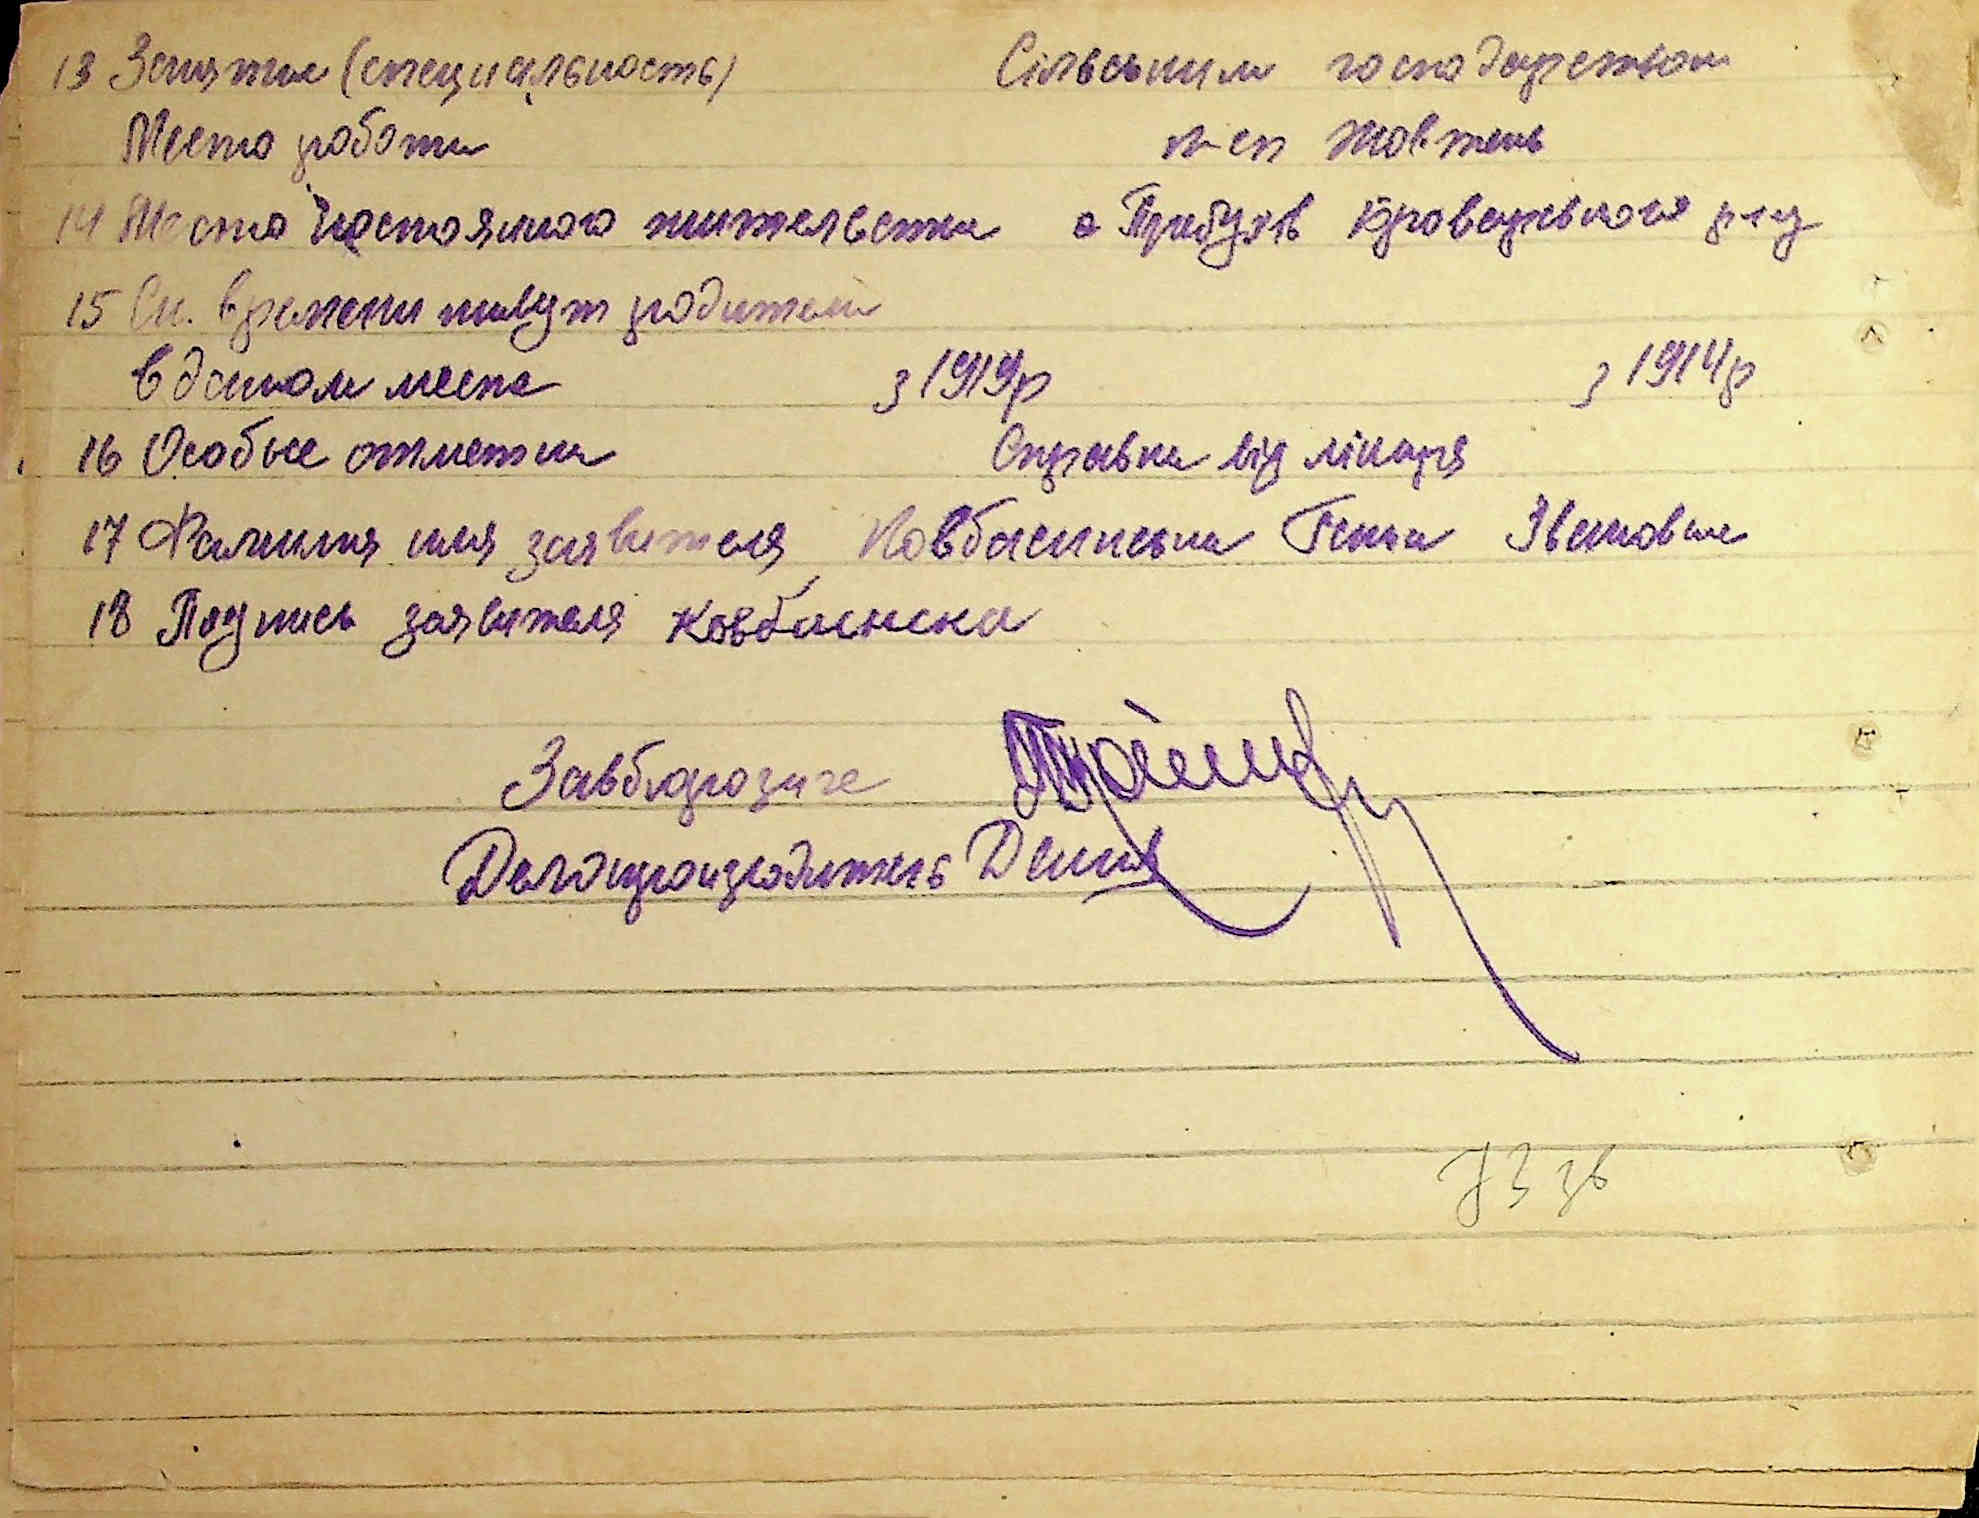 13 Занятие (специальность) Сільським господарством
Место работи к-сп Жовтень
14 Место постоянного жительства с Требухів Броварського р-ну
15 Ск. времени живут родители
в даном месте з 1919р з 1914р
16 Особые отметки Справка від лікаря
17 Фамилия имя заявителя Ковбасинська Ганна Івановна
18 Подпись заявителя Ковбаснска
Завбюрозаге
Делопроизводитель